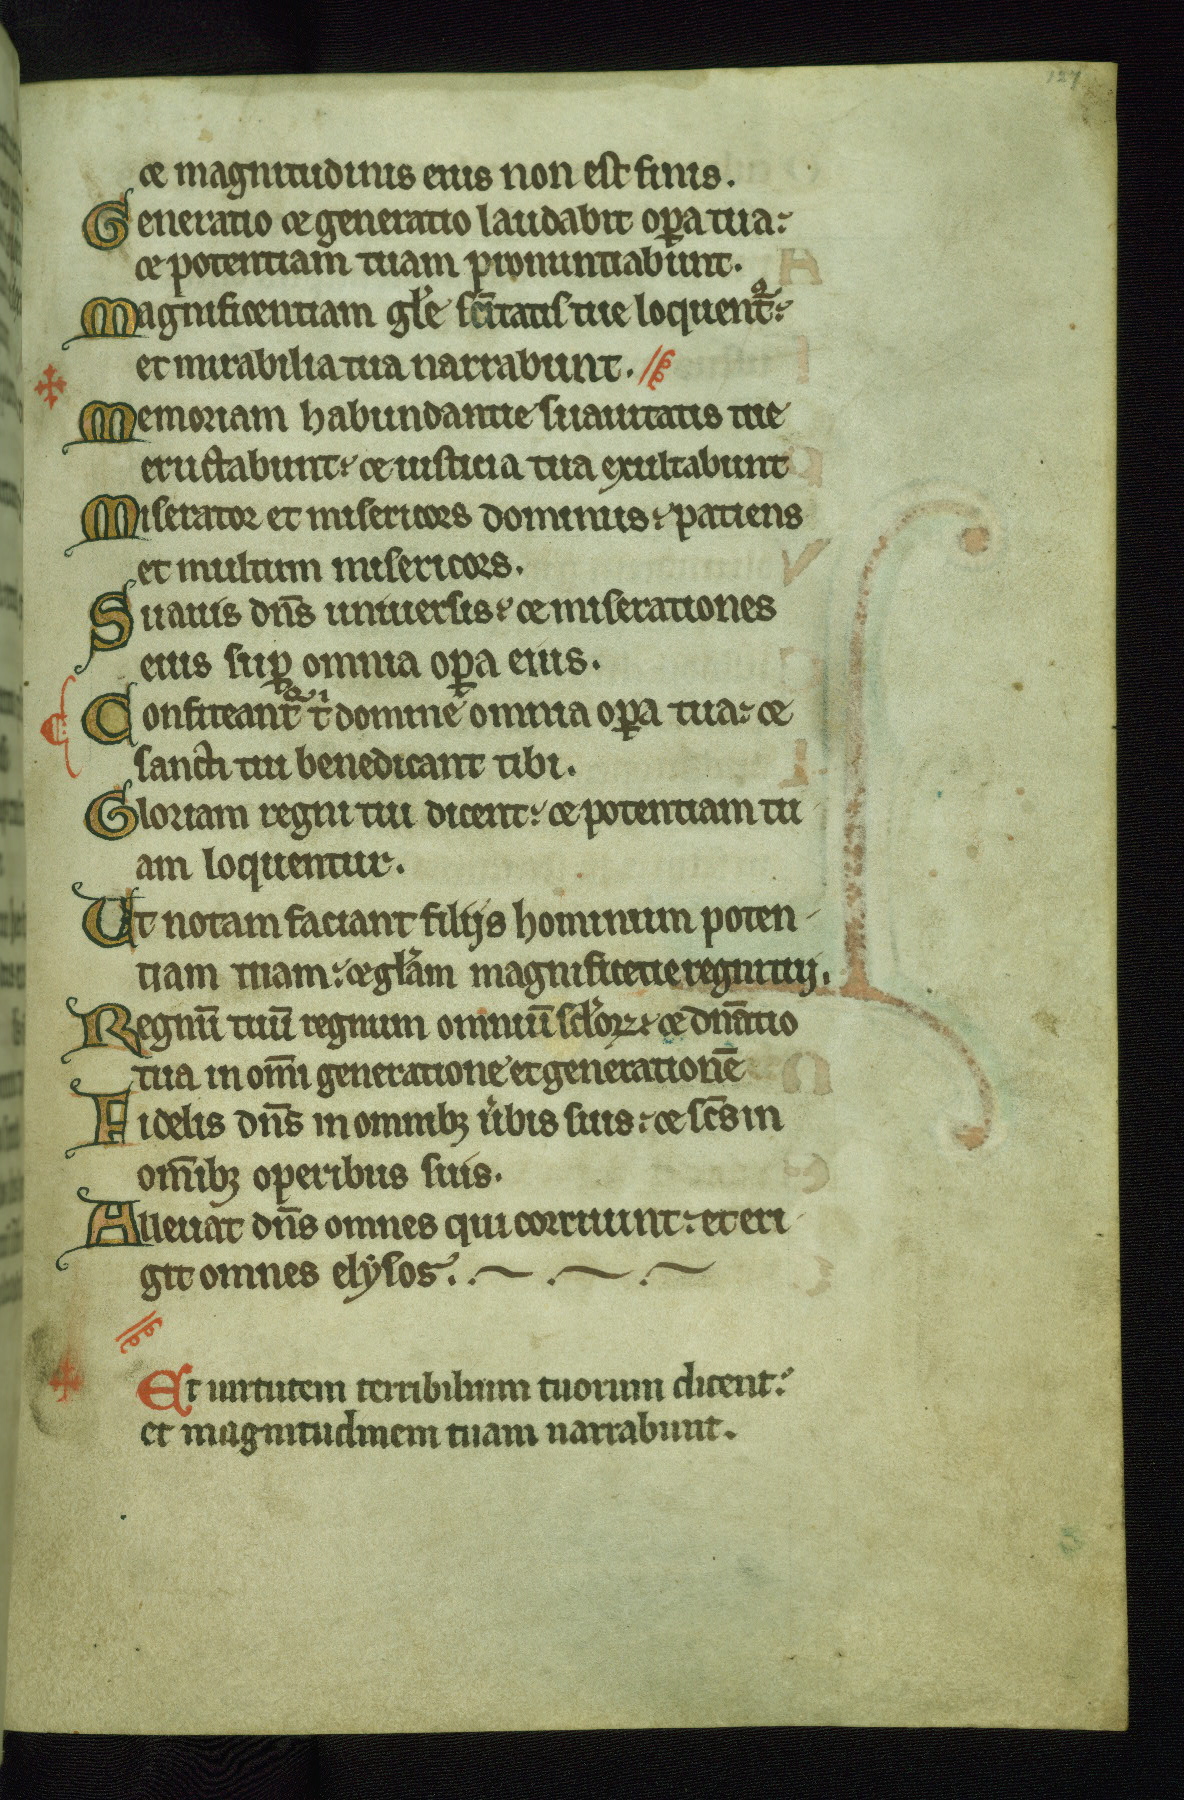 127
⁊ magnitudinis eius non est finis.
Generatio ⁊ generatio laudabit oꝑa tua:
⁊ potentiam tuam pronuntiabunt.
Magnificentiam gl̄e sc̄itatis tue loquent᷑:
et mirabilia tua narrabunt.
Memoriam habundantie suauitatis tue
eructabunt: ⁊ iusticia tua exultabunt
Miserator et misericors dominus: patiens
et multum misericors.
Suauis dn̄s uniuersis: ⁊ miserationes
eius suꝑ omnia oꝑa eius.
Confiteant᷑ tⁱ domine omnia oꝑa tua: ⁊
sancti tui benedicant tibi.
Gloriam regni tui dicent: ⁊ potentiam tu
am loquentur.
Ut notam faciant filijs hominum poten
tiam tuam: ⁊ gl̄am magnificetie regni tuij.
Regnū tuū regnum omniū scl̄oꝝ: ⁊ dn̄atio
tua in om̄i generatione et generationē
Fidelis dn̄s in omnibꝫ u̇bis suis: ⁊ sc̄s in
om̄ibꝫ operibus suis.
Alleuat dn̄s omnes qui corruunt: et eri
git omnes elẏsos.
Et uirtutem terribilium tuorum dicent:
et magnitudinem tuam narrabunt.